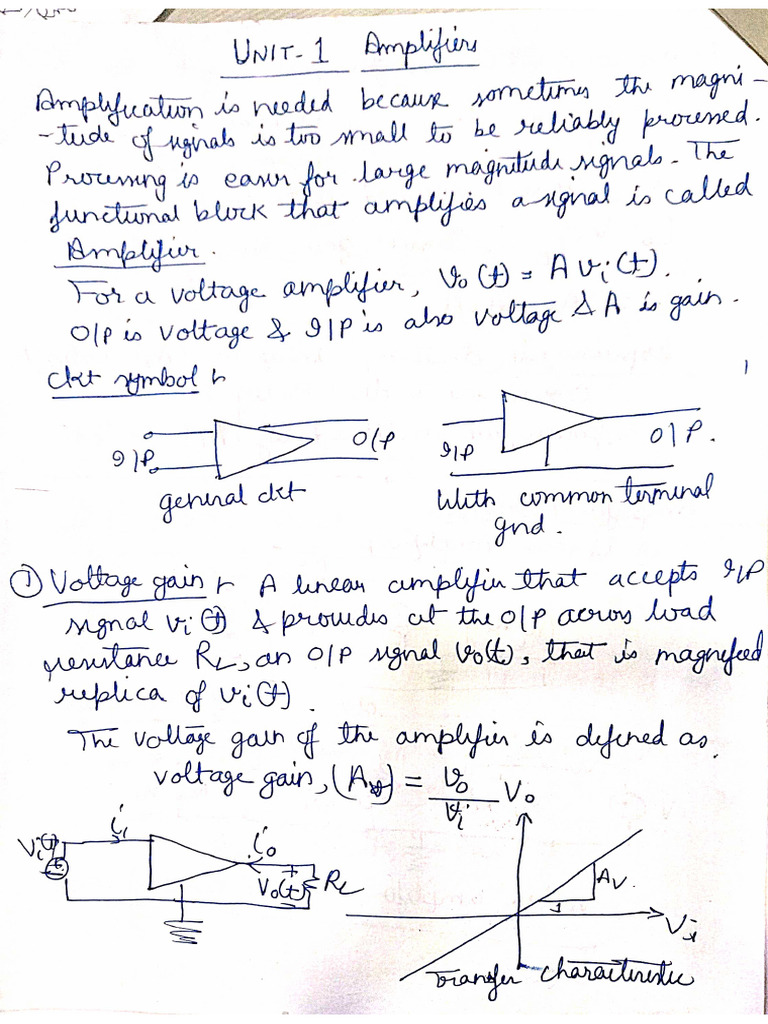 UNIT-1 Amplifiers
Amplification is needed because sometimes the magni-
-tude of signals is too small to be reliably processed.
Processing is easier for large magnitude signals. The
functional block that amplifies a signal is called
Amplifier.
For a voltage amplifier, Vo(t) = A vi(t).
O/P is voltage & I/P is also voltage & A is gain.
ckt symbol :-
I/P O/P I/P O/P.
general ckt With common terminal
gnd.
① Voltage gain :- A linear amplifier that accepts I/P
signal vi(t) & provides at the O/P across load
resistance RL, an O/P signal vo(t), that is magnified
replica of vi(t).
The voltage gain of the amplifier is defined as.
voltage gain, (Av) = Vo/Vi
Vi(t) ii io Vo(t) + RL
Vo Av. 1 Vi
Transfer characteristic